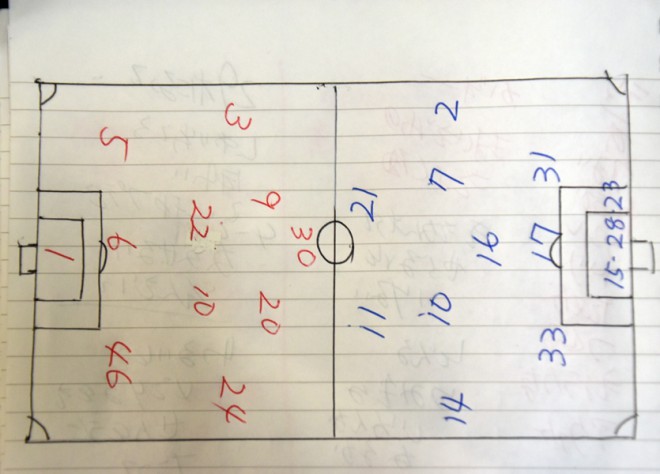 30
9 20
3 22 10 24
5 6 46
1
11 21
14 10 7 2
16
33 17 31
15·28 23